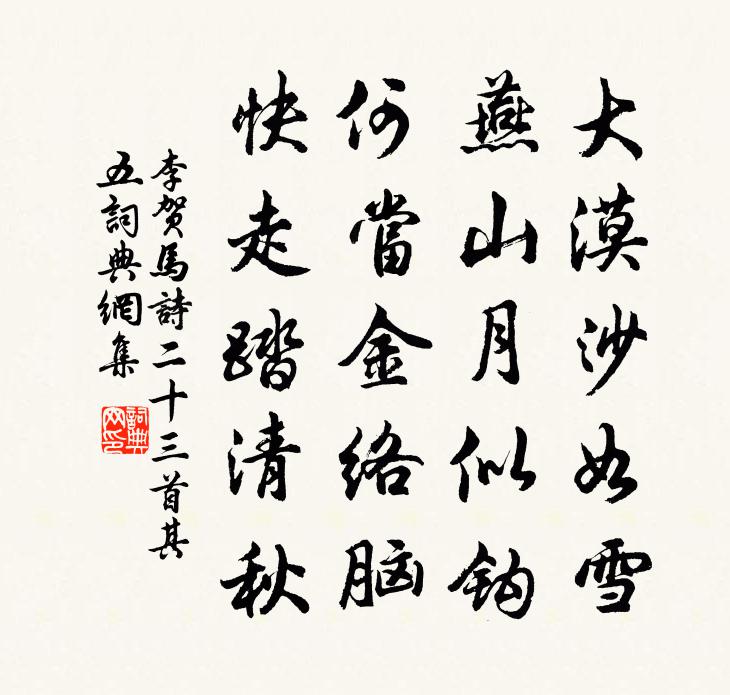 大漠沙如雪
燕山月似鈎
何當金络脑
快走踏清秋
李贺馬詩二十三首其
五詞典網集
詞典
网印